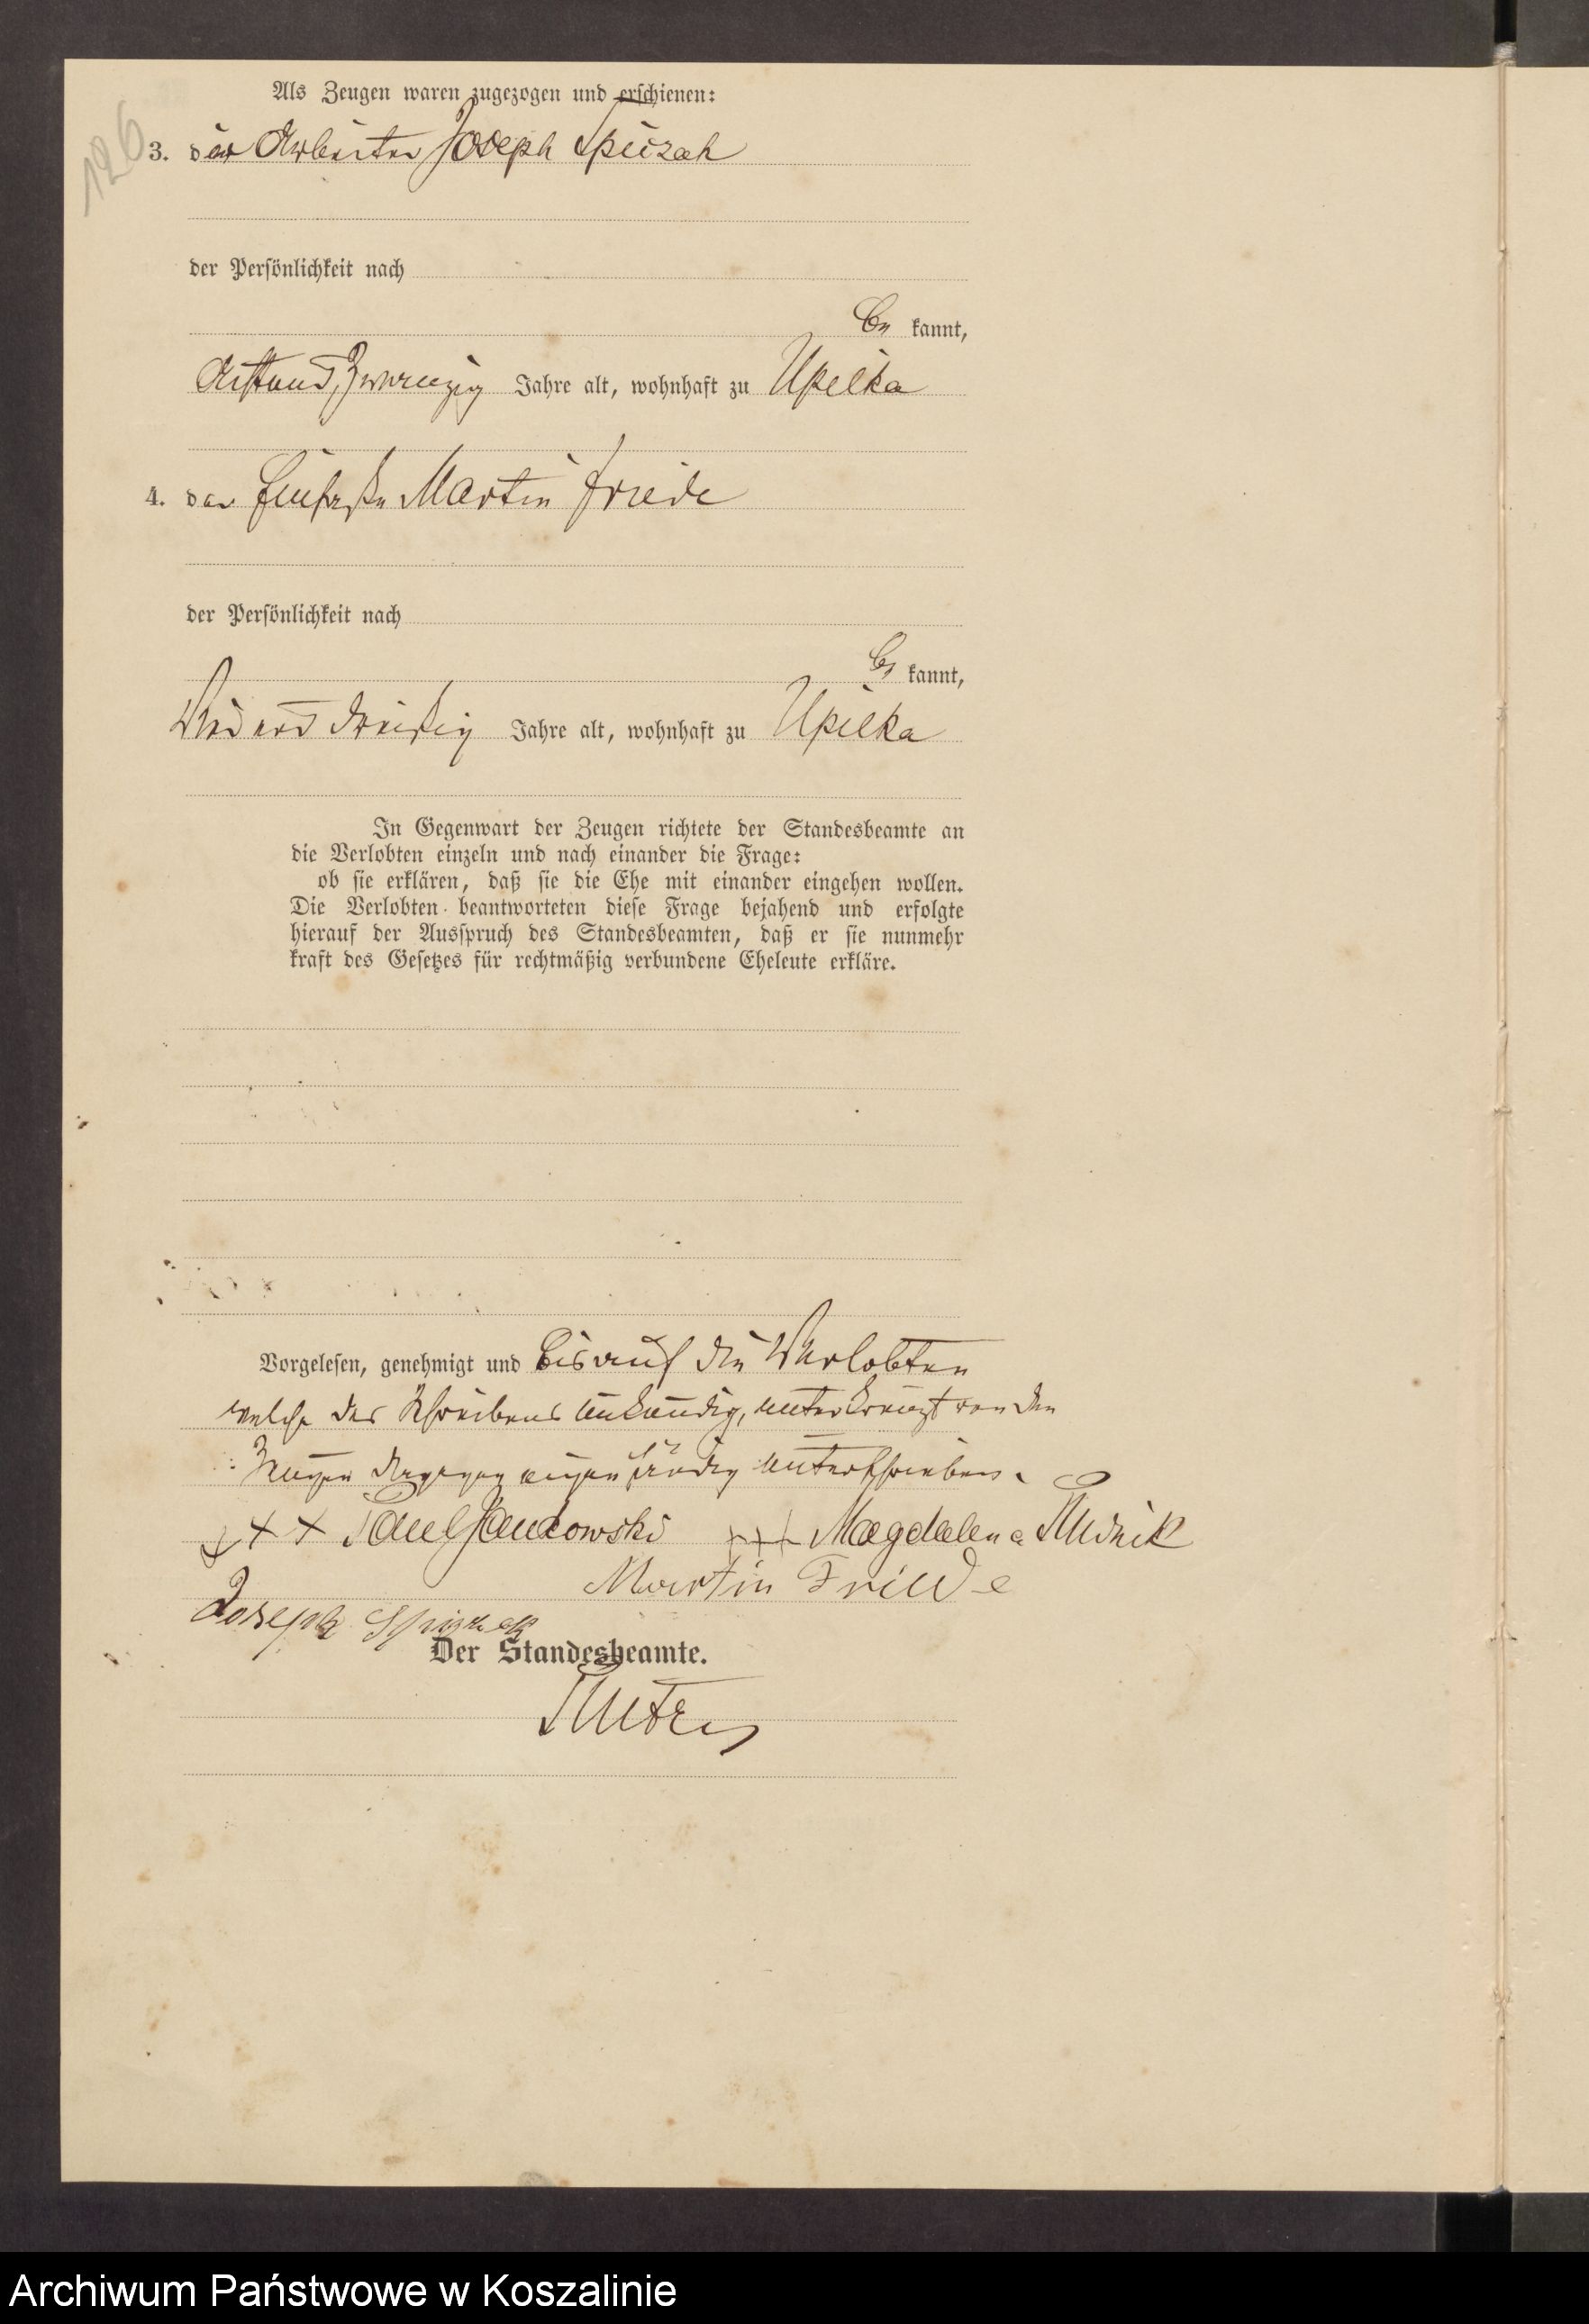 126
Als Zeugen waren zugezogen und erschienen:
3. der Arbeiter Joseph Spiczak
der Persönlichkeit nach
be kannt,
Achtundzwanzig Jahre alt, wohnhaft zu Upilka
4. der Einsasse Martin Friede
der Persönlichkeit nach
be kannt,
Vierunddreißig Jahre alt, wohnhaft zu Upilka
In Gegenwart der Zeugen richtete der Standesbeamte an
die Verlobten einzeln und nach einander die Frage:
ob sie erklären, daß sie die Ehe mit einander eingehen wollen.
Die Verlobten beantworteten diese Frage bejahend und erfolgte
hierauf der Ausspruch des Standesbeamten, daß er sie nunmehr
kraft des Gesetzes für rechtmäßig verbundene Eheleute erkläre.
Vorgelesen, genehmigt und bis auf die Verlobten
welche des Schreibens unkundig, unterkreuzt von den
Zeugen dagegen eigenhändig unterschrieben.
+++ Paul Jankowski +++ Magdalena Rudnik
Martin Friede
Joseph
Der Standesbeamte.
Archiwum Państwowe w Koszalinie